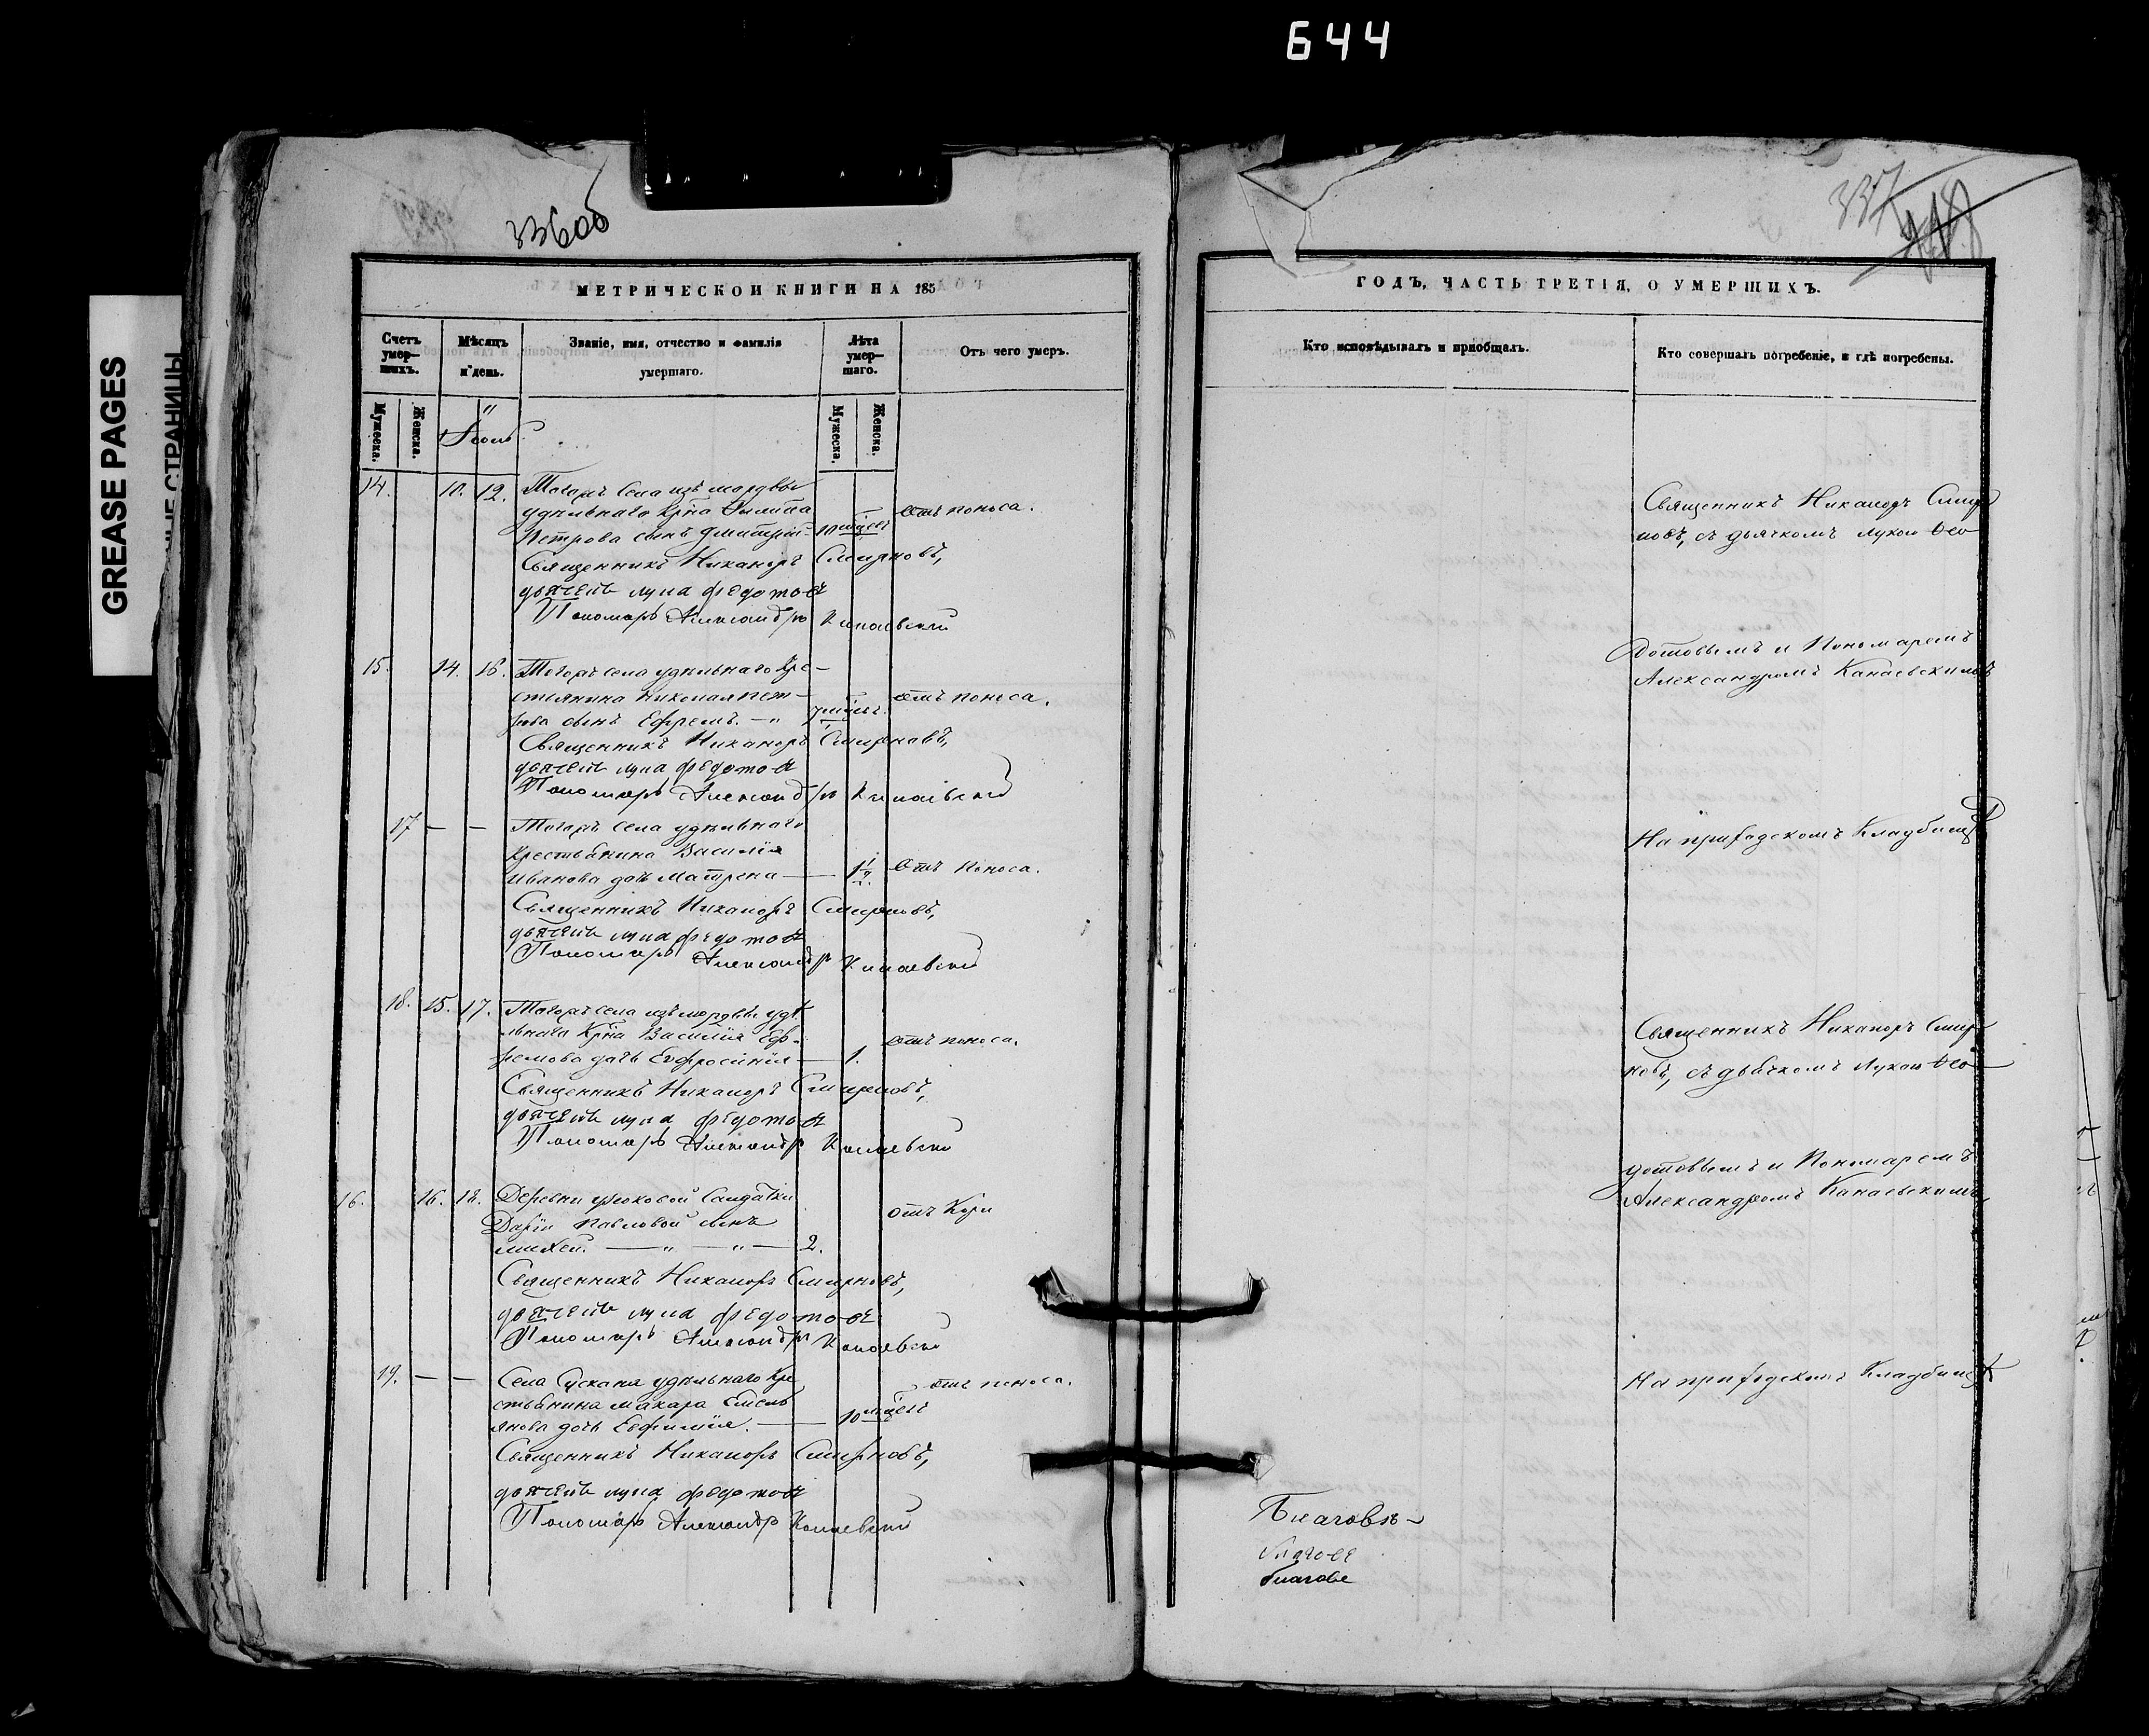 644
GREASE PAGES
СТРАНИЦЫ
336об
337
МЕТРИЧЕСКОЙ КНИГИ НА 185
Счетъ умер-шихъ.
Мѣсяцъ и день.
Званіе, имя, отчество и фамилія умершаго.
Лѣта умер-шаго.
Отъ чего умеръ.
Мужеска.
Женска.
Мужеска.
Женска.
14. 10. 12. Тогожъ села изъ мордвы
удѣльнаго Крѣна Филипа
Петрова сынъ Дмитрій 10 мцевъ отъ поноса.
Священникъ Никаноръ Смирновъ,
дьячекъ лука федотовъ
Пономарь Александръ Канаевскій
15. 14. 16. Тогожъ села удѣльнаго Кре-
стьянина Николая Пет-
рова сынъ Ефремъ. — 7 мцевъ. отъ поноса.
Священникъ Никаноръ Смирновъ,
дьячекъ лука федотовъ
Пономарь Александръ Канаевскій
17 — — Тогожъ села удѣльнаго
Крестьянина Василія
Иванова дочь Матрена — Отъ поноса.
Священникъ Никаноръ Смирновъ,
дьячекъ лука федотовъ
Пономарь Александръ Канаевскій
18. 15. 17. Тогожъ села изъ мордвы удѣ-
льнаго Крѣна Василія Еф-
ремова дочь Евфросинія — 1. отъ поноса.
Священникъ Никаноръ Смирновъ,
дьячекъ лука федотовъ
Пономарь Александръ Канаевскій
16. 16. 18. Деревни Солдатки
Даріи Павловой сынъ
Михей. — " — " — 2. отъ Кори
Священникъ Никаноръ Смирновъ,
дьячекъ лука федотовъ
Пономарь Александръ Канаевскій
19. — — Села Сускана удѣльнаго Кре
стьянина Макара Емель
янова дочь Евфимія. — 10 мцевъ отъ поноса.
Священникъ Никаноръ Смирновъ,
дьячекъ лука федотовъ
Пономарь Александръ Канаевскій
ГОДЪ, ЧАСТЬ ТРЕТІЯ, О УМЕРШИХЪ.
Кто исповѣдывалъ и пріобщалъ.
Кто совершалъ погребеніе, и гдѣ погребены.
Священникъ Никаноръ Смир
новъ, съ дьячкомъ Лукою Ѳео
дотовымъ и Пономаремъ
Александромъ Канаевскимъ
На приходскомъ Кладбищѣ
Священникъ Никаноръ Смир
новъ, съ дьячкомъ Лукою Ѳео
дотовымъ и Пономаремъ
Александромъ Канаевскимъ
На приходскомъ Кладбищѣ
Благовѣ-
благове
благове